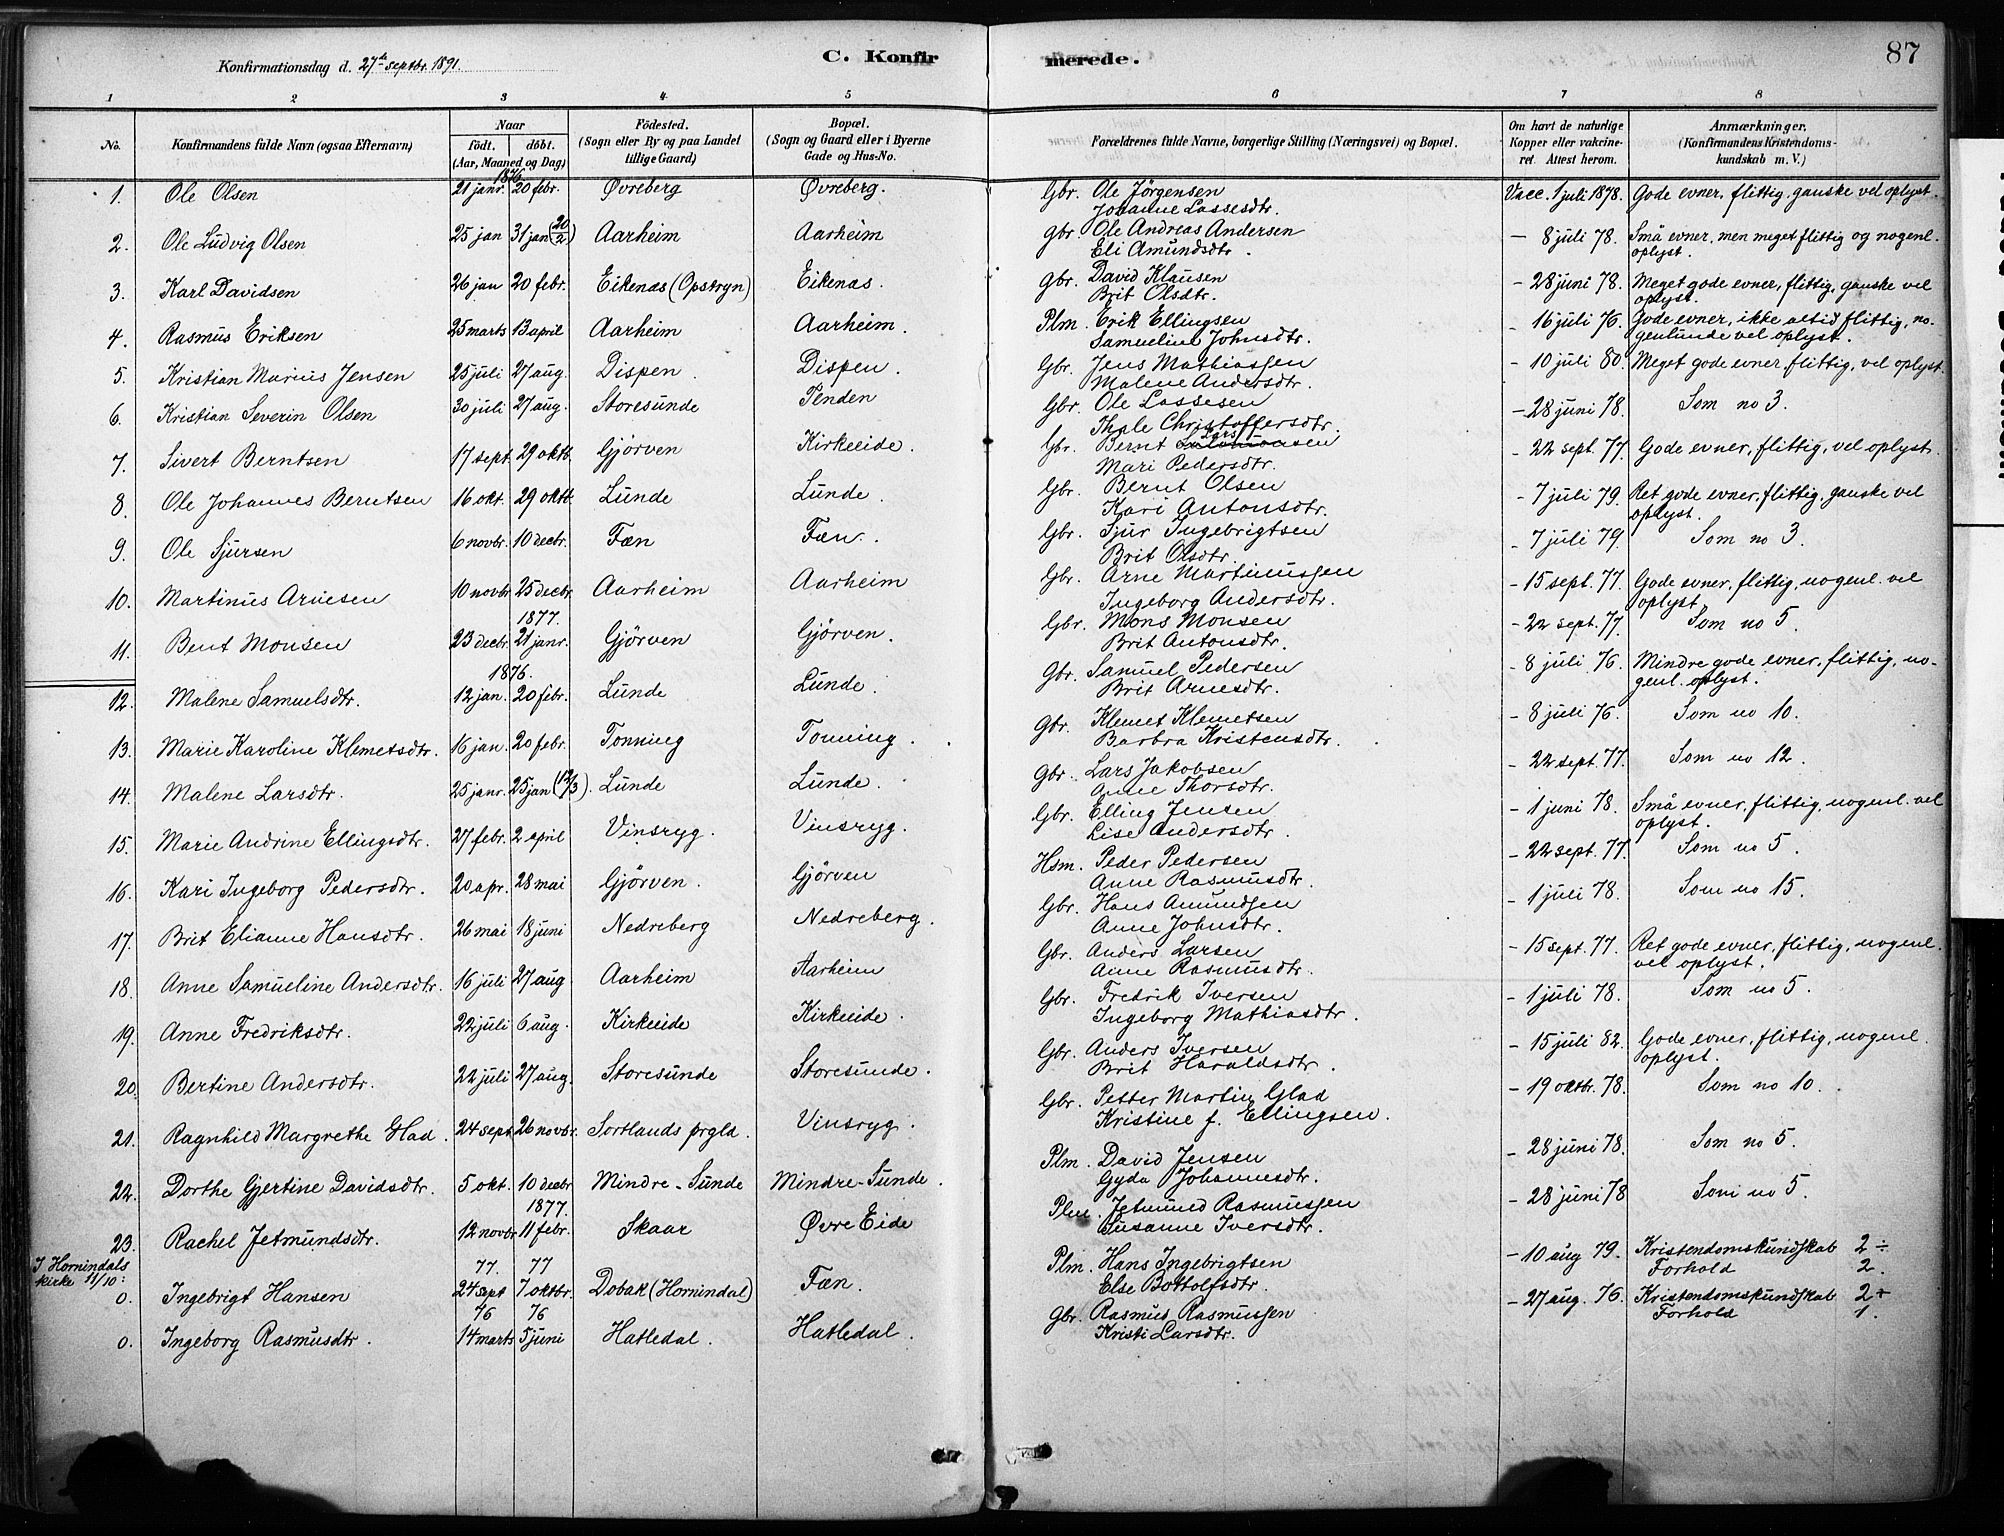 Konfirmationsdag d. 27de septbr. 1891.
C. Konfirmerede.
87
1 2 3 4 5 6 7 8
No.
Konfirmandens fulde Navn (ogsaa Efternavn)
Naar
født. døbt.
(Aar, Maaned og Dag)
Fødested.
(Sogn eller By og paa Landet
tillige Gaard)
Bopæl.
(Sogn og Gaard eller i Byerne
Gade og Hus-No.
Forældrenes fulde Navne, borgerlige Stilling (Næringsvei) og Bopæl.
Om havt de naturlige
Kopper eller vakcine-
ret. Attest herom.
Anmærkninger.
(Konfirmandens Kristendoms-
kundskab m. V.)
1876
1. Ole Olsen 21 janr. 20 febr. Øvreberg Øvreberg. Gbr. Ole Jörgensen Vacc. 1 juli 1878. Gode evner, flittig, ganske vel oplyst.
Johanne Lassesdtr.
2. Ole Ludvig Olsen 25 jan 31 jan (20/2) Aarheim Aarheim Gbr. Ole Andreas Andersen – 8 juli 78. Små evner, men meget flittig og nogenl.
Eli Amundsdtr. oplyst.
3. Karl Davidsen 26 jan 20 febr. Eikenæs (Opstryn) Eikenæs. Gbr. David Klausen – 28 juni 78. Meget gode evner, flittig, ganske vel
Brit Olsdtr. oplyst.
4. Rasmus Eriksen 25 marts 13 april Aarheim Aarheim. Plm. Erik Ellingsen – 16 juli 76. Gode evner, ikke altid flittig, no-
Samueline Johnsdtr. genlunde vel oplyst.
5. Kristian Marius Jensen 25 juli 27 aug. Dispen. Dispen. Gbr. Jens Mathiassen – 10 juli 80. Meget gode evner, flittig, vel oplyst.
Malene Andersdtr.
6. Kristian Severin Olsen 30 juli 27 aug. Storesunde Tenden Gbr. Ole Lassesen – 28 juni 78. Som no 3.
Thale Christoffersdtr.
7. Sivert Berntsen 17 sept. 29 oktb. Gjörven Kirkeeide. Gbr. Bernt Larssen – 22 sept. 77. Gode evner, flittig, vel oplyst.
Mari Pedersdtr.
8. Ole Johannes Berntsen 16 okt. 29 oktb. Lunde Lunde. Gbr. Bernt Olsen – 7 juli 79. Ret gode evner, flittig, ganske vel
Kari Antonsdtr. oplyst.
9. Ole Sjursen 6 novbr. 10 decbr. Fæn Fæn. Gbr. Sjur Ingebrigtsen – 7 juli 79. Som no 3.
Brit Olsdtr.
10. Martinus Arnesen 10 novbr. 25 decbr. Aarheim Aarheim Gbr. Arne Martinussen – 15 sept. 77. Gode evner, flittig, nogenl. vel
Ingeborg Andersdtr. oplyst.
1877.
11. Bent Monsen 23 decbr. 21 janr. Gjörven Gjörven. Gbr. Mons Monsen – 22 sept. 77. Som no 5.
Brit Antonsdtr.
1876.
12. Malene Samuelsdtr. 12 jan. 20 febr. Lunde Lunde. Gbr. Samuel Pedersen – 8 juli 76. Mindre gode evner, flittig, no-
Brit Arnesdtr. genl. oplyst.
13. Marie Karoline Klemetsdtr. 16 jan. 20 febr. Tonning Tonning. Gbr. Klemet Klemetsen – 8 juli 76. Som no 10.
Barbra Kristensdtr.
14. Malene Larsdtr. 25 janr. 25 jan (12/3). Lunde Lunde. Gbr. Lars Jakobsen – 22 sept. 77. Som no 12.
Anne Thorsdtr.
15. Marie Andrine Ellingsdtr. 27 febr. 2 april Vinsryg. Vinsryg. Gbr. Elling Jensen – 1 juni 78. Små evner, flittig, nogenl. vel
Lise Andersdtr. oplyst.
16. Kari Ingeborg Pedersdtr. 20 apr. 28 mai Gjörven. Gjörven Hsm. Peder Pedersen – 22 sept. 77. Som no 5.
Anne Rasmusdtr.
17. Brit Elianne Hansdtr. 26 mai 18 juni Nedreberg Nedreberg. Gbr. Hans Amundsen – 1 juli 78. Som no 15.
Anne Johnsdtr.
18. Anne Samueline Andersdtr. 16 juli 27 aug Aarheim Aarheim Gbr. Anders Larsen – 15 sept. 77. Ret gode evner, flittig, nogenl.
Anne Rasmusdtr. vel oplyst.
19. Anne Fredriksdtr. 22 juli 6 aug. Kirkeeide Kirkeeide. Gbr. Fredrik Iversen – 1 juli 78. Som no 5.
Ingeborg Mathiasdtr.
20. Bertine Andersdtr. 22 juli 27 aug. Storesunde Storesunde. Gbr. Anders Iversen – 15 juli 82. Gode evner, flittig, nogenl.
Brit Haraldsdtr. oplyst.
21. Ragnhild Margrethe Glad. 24 sept. 26 novbr. Sortlands prgld. Vinsryg. Gbr. Petter Martin Glad – 19 oktbr. 78. Som no 10.
Kristine f. Ellingsen.
22. Dorthe Gjertine Davidsdtr. 5 okt. 10 decbr Mindre-Sunde Mindre-Sunde. Plm. David Jensen – 28 juni 78. Som no 5.
Gyda Johannesdtr.
1877.
23. Rachel Jetmundsdtr. 12 novbr 11 febr. Skaar Øvre Eide Plm. Jetmund Rasmussen – 28 juni 78 Som no 5.
Susanne Iversdtr.
I Hornindals
kirke 11/10:
77. 77
0. Ingebrigt Hansen 24 sept 7 oktbr. Dobak (Hornindal) Fæn. Plm. Hans Ingebrigtsen – 10 aug 79. Kristendomskundskab 2 ÷
Else Bottolfsdtr. Forhold 2.
76 76
0. Ingeborg Rasmusdtr. 14 marts 5 juni Hatledal. Hatledal. Gbr. Rasmus Rasmussen – 27 aug. 76. Kristendomskundskab 2 +
Kristi Larsdtr. Forhold 1.